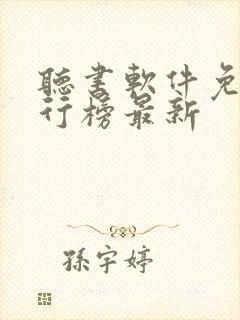 聽書軟件免
行榜最新
孫宇婷